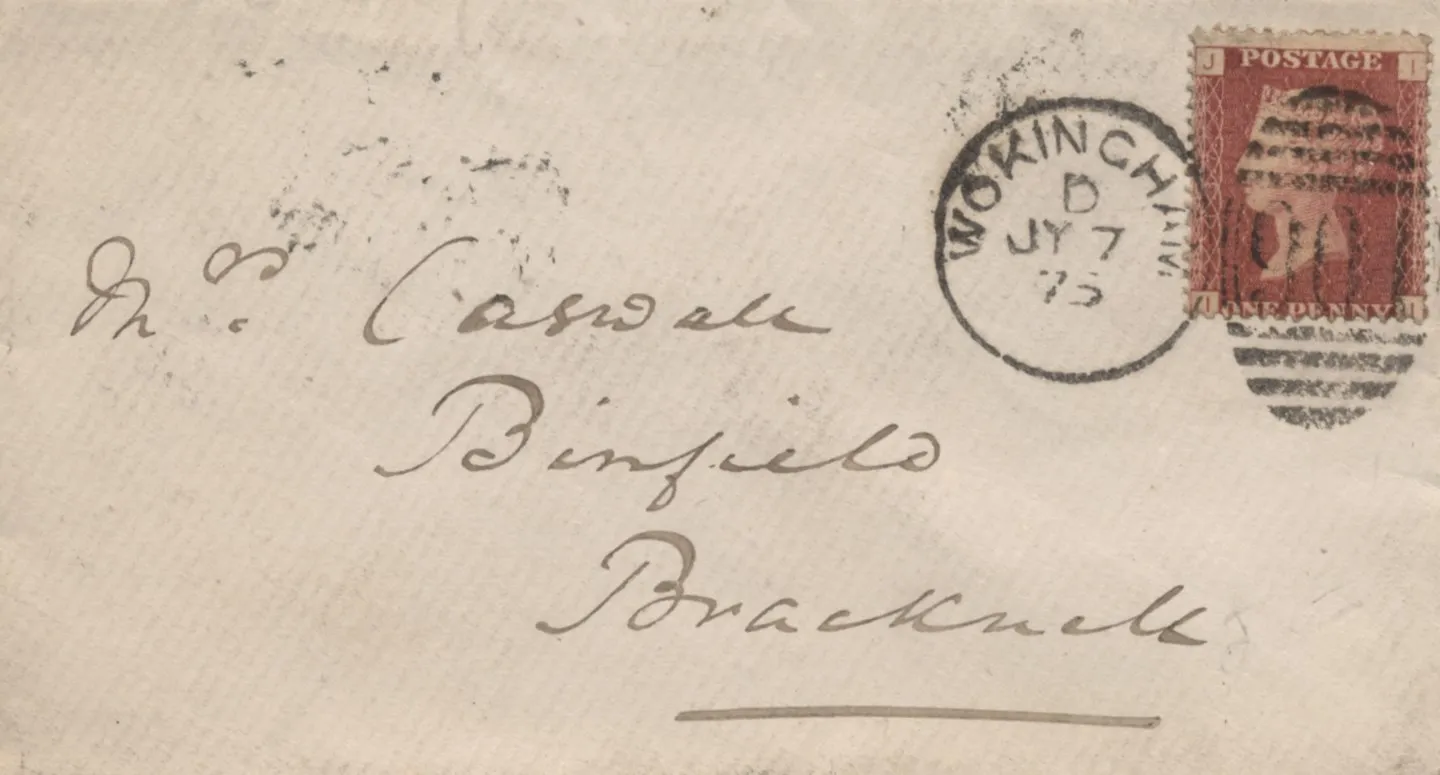 J POSTAGE I
WOKINGHAM
D
JY 7
75
901
I ONE PENNY J
Mr. Caswall
Binfield
Bracknell